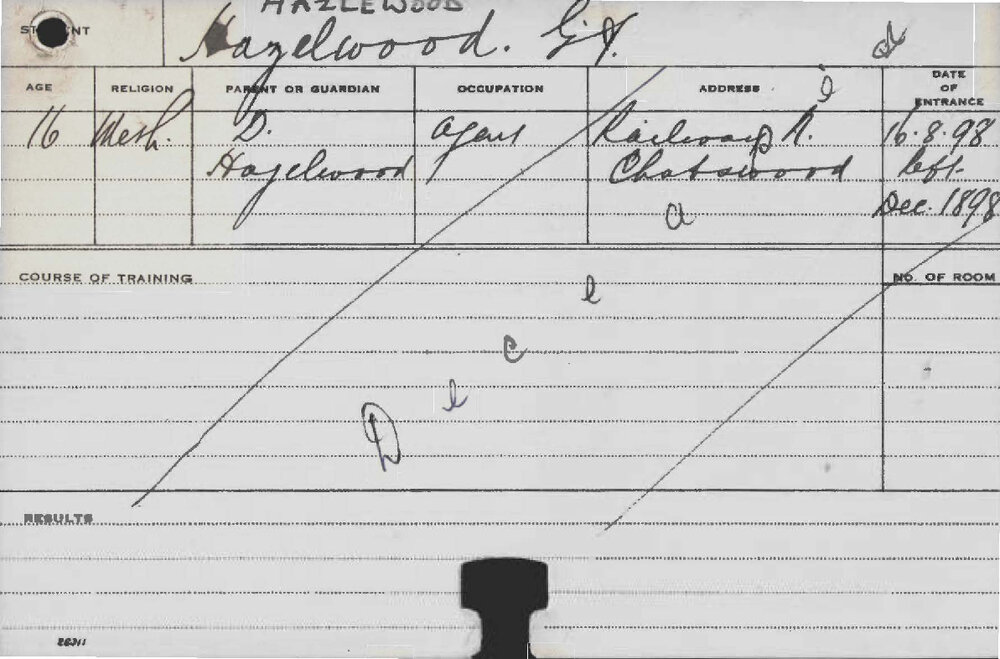 HAZLEWOOD
STUDENT Hazelwood. G.
AGE RELIGION PARENT OR GUARDIAN OCCUPATION ADDRESS DATE OF ENTRANCE
16 Meth. D. Hazelwood Agent Railway Chatswood 16.8.98
left
Dec. 1898
COURSE OF TRAINING NO. OF ROOM
Deceased
RESULTS